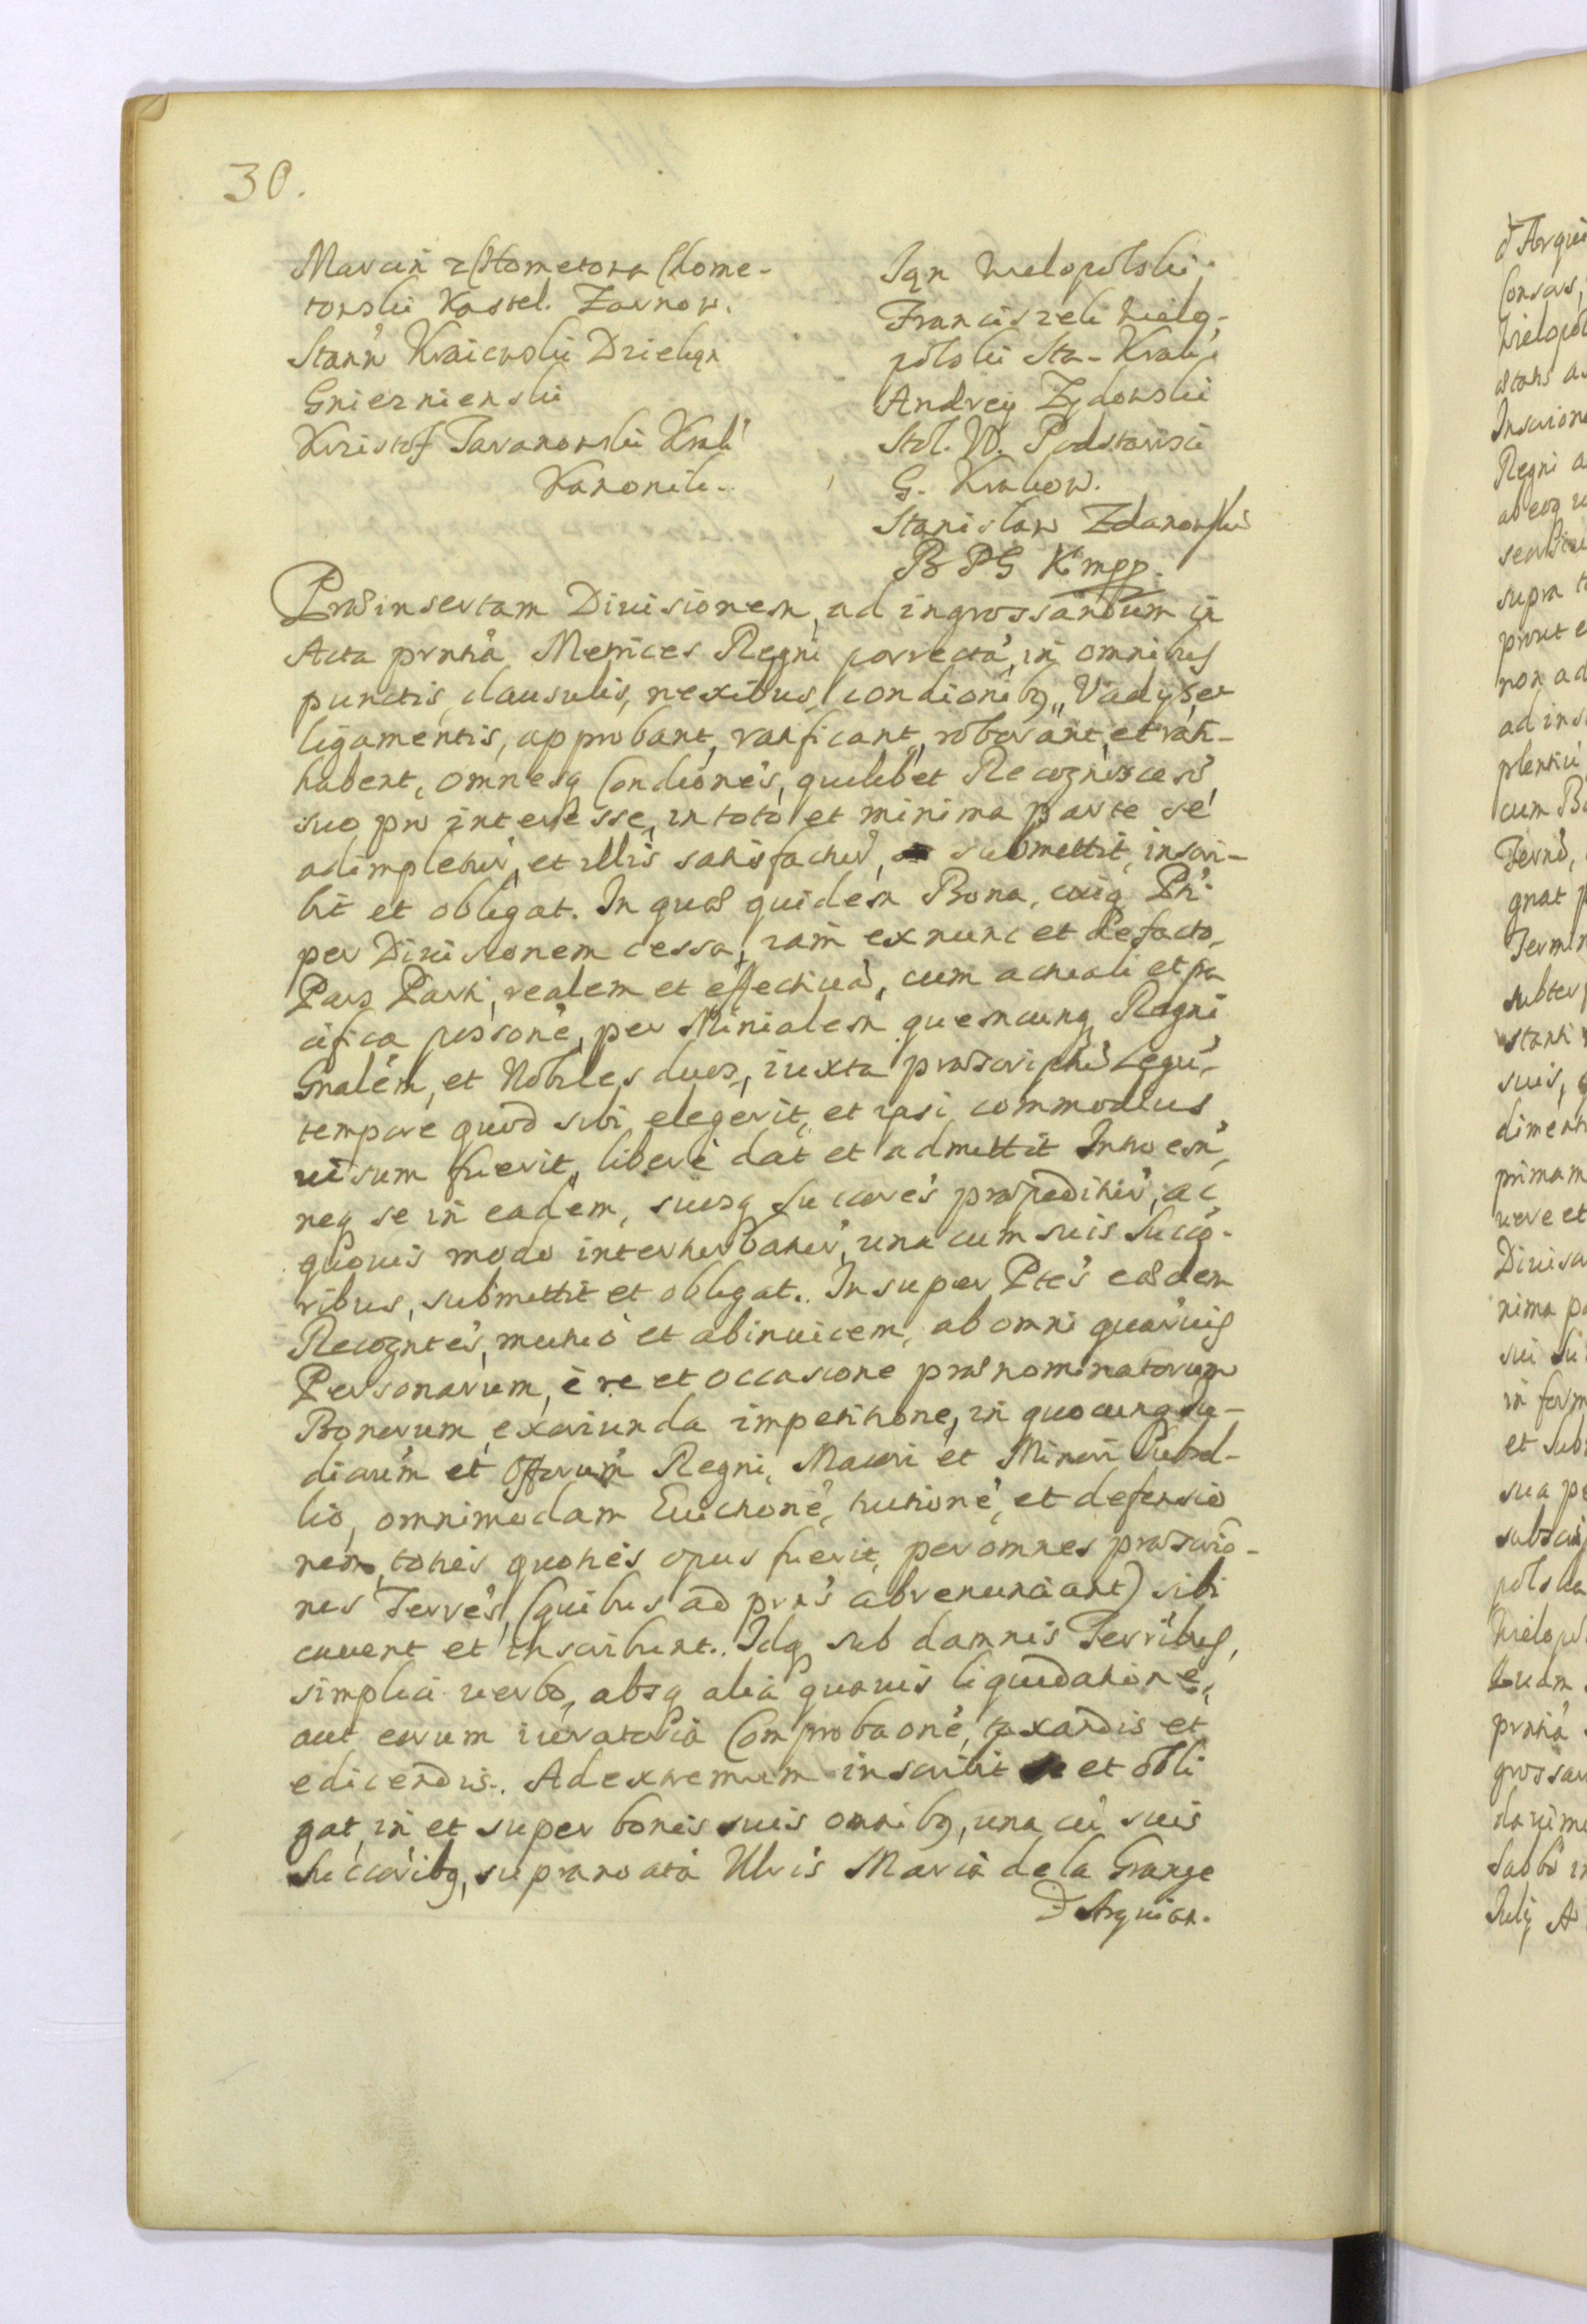 30.
Marcin z Chometowa Chome-
towski Kastel. Zarnow.
Stann Kraiewski Dziekan
Gnieznienski
Krzistof Taranowski Krak.
Kanonik.
Jan Wielopolski
Franciszek Wielo-
polski Sta. Krak.
Andrzey Zydowski
Stol. W. Podstarości
G. Krakow.
Stanislaw Zdanowski
B P G K mpp.
Præinsertam Diuisionem, ad ingrossandum in
Acta prntia Metrices Regni porrectã, in omnibus
punctis, clausulis, nexibus, condionibq, Vadys, et
ligamentis, approbant, ratificant, roborant, et rati-
habent, omnesq Condiones, quilibet Recognoscens,
suo pro interesse, in toto et minima parte se
adimpleturũ, et illis satisfacturũ, submittit, inscri-
bit et obligat. In quæ quidem Bona, cuiq Pti
per Diuisionem cessa, iam ex nunc et de facto,
Pars Parti, realem et effectiuã, cum actuali et pa
cifica possone, per Minialem quemcunq Regni
Gnalem, et Nobiles duos, iuxta præscriptũ Legũ,
tempore quod sibi elegerit, et ipsi commodius
uisum fuerit, liberè dat et admittit Introem,
neq se in eadem, suosq Succores præpeditur̃, ac
quouis modo interturbatur̃, una cum suis Succo-
ribus, submittit et obligat. Insuper Ptes eædem
Recogntes, mutuo et abinuicem, ab omni quaruis
Personarum, è re et occasione prænominatorum
Bonorum, exoriunda impetitione, in quocunq Iu-
diciorum et Offorum Regni, Maiori et Minori Subsel-
lio, omnimodam Euictione, tuitione, et defensio
nem, toties quoties opus fuerit, per omnes præscrip-
nes Terres, (quibus ad prns abrenunciant) sibi
cauent et inscribunt. Idq sub damnis Terribus,
simplici uerbo, absq alia quauis liquidatione,
aut eorum iuratoria Comprobaone, taxandis et
edicendis. Ad extremum inscribit et obli
gat, in et super bonis suis omnibq, una cũ suis
Succoribq, supranoata Illris Maria de la Grange
D Arquian.